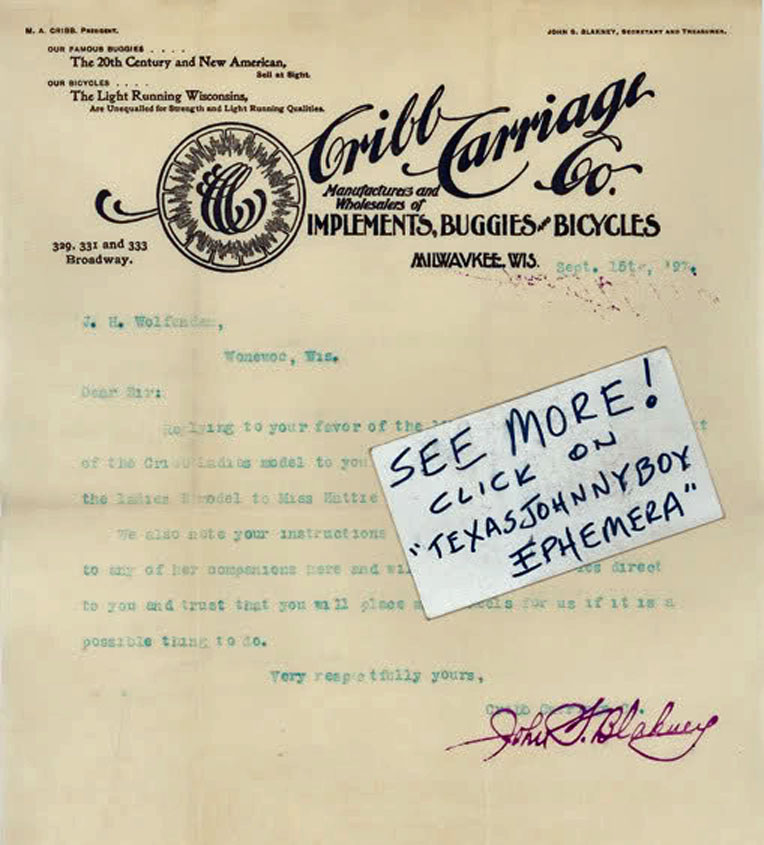 M. A. CRIBB, President.
JOHN S. BLAKNEY, SECRETARY AND TREASURER.
OUR FAMOUS BUGGIES . . . .
The 20th Century and New American,
Sell at Sight.
OUR BICYCLES . . . .
The Light Running Wisconsins,
Are Unequalled for Strength and Light Running Qualities.
Cribb Carriage Co.
Manufacturers and
Wholesalers of
IMPLEMENTS, BUGGIES AND BICYCLES
329, 331 and 333
Broadway.
MILWAVKEE, WIS.
Sept. 15th, '97.
J. H. Wolfenden,
Wonewoc, Wis.
Dear Sir:
Replying to your favor of the
of the Cribb Ladies model to you
the ladies model to Miss Hattie
We also note your instructions
to any of her companions here and direct
to you and trust that you will place for us if it is a
possible thing to do.
Very respectfully yours,
Cribb Carriage Co.
John S. Blakney
SEE MORE!
CLICK ON
"TEXASJOHNNYBOY
EPHEMERA"